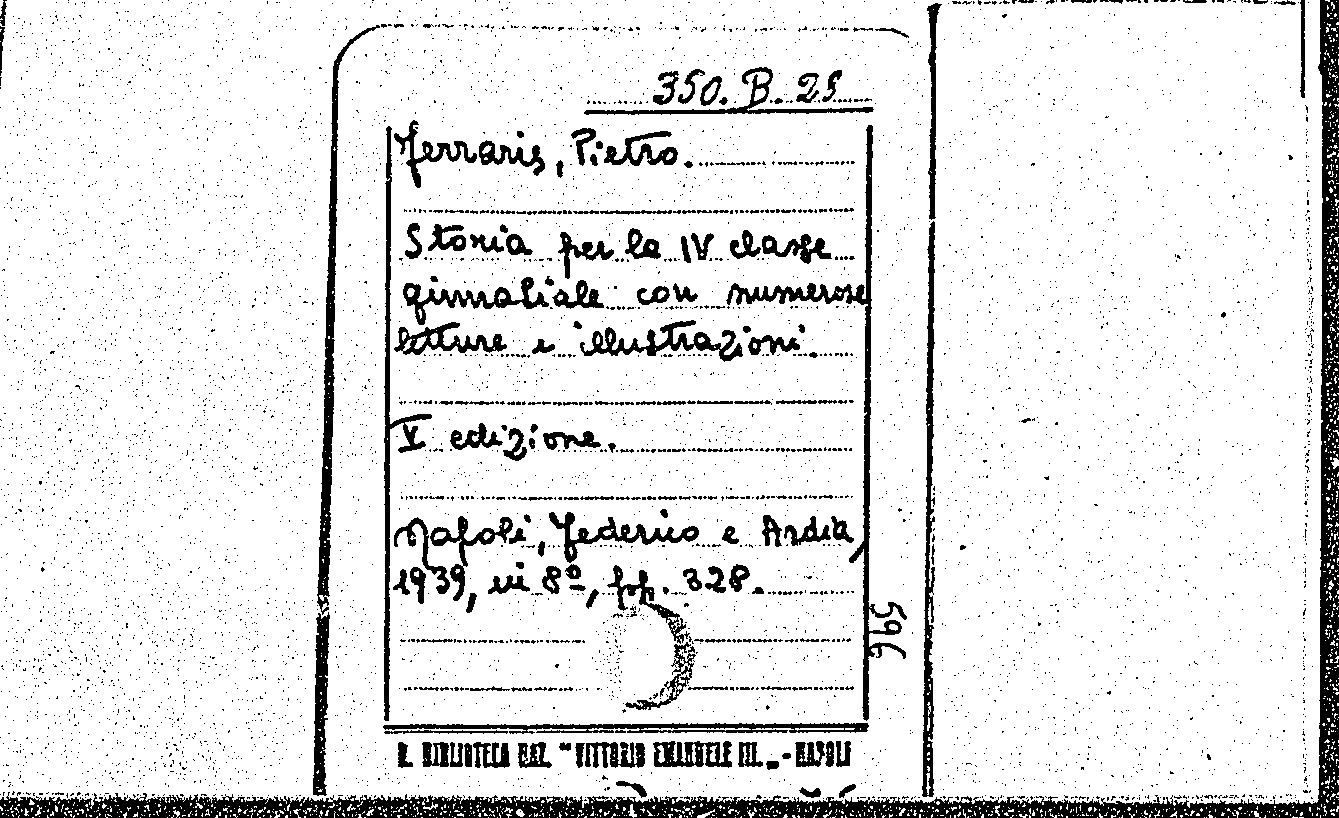 350. B. 25
Ferraris, Pietro.
Storia per la IV classe
ginnasiale con numerose
letture e illustrazioni.
V edizione.
Napoli, Federico e Ardia,
1939, in 8º, pp. 328.
596
R. BIBLIOTECA NAZ. "VITTORIO EMANUELE III. „ - NAPOLI